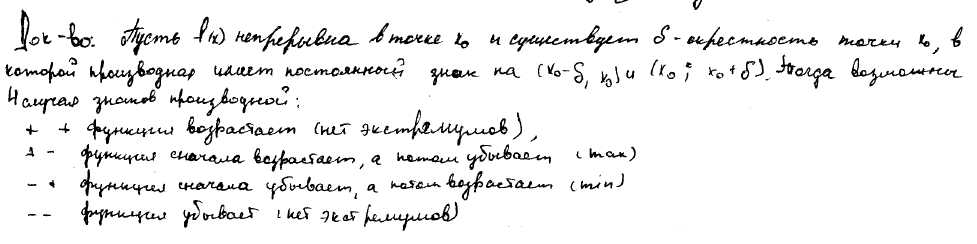 Док-во: Пусть f(x) непрерывна в точке x₀ и существует δ-окрестность точки x₀, в
которой производная имеет постоянный знак на (x₀-δ, x₀) и (x₀; x₀+δ). Тогда возможны
4 случая знаков производной:
+ + функция возрастает (нет экстремумов),
+ - функция сначала возрастает, а потом убывает (max)
- + функция сначала убывает, а потом возрастает (min)
- - функция убывает (нет экстремумов)